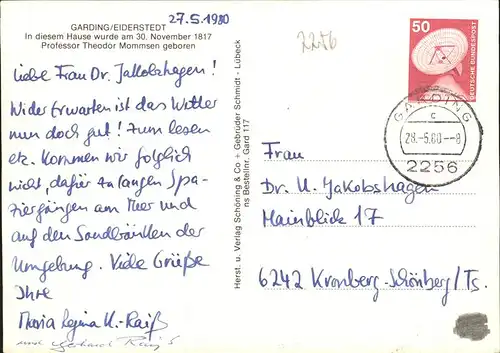 GARDING/EIDERSTEDT
In diesem Hause wurde am 30. November 1817
Professor Theodor Mommsen geboren
27.5.1980
Liebe Frau Dr. Jakobshagen!
Wider Erwarten ist das Wetter
nun doch gut! Zum Lesen
etc. kommen wir folglich
nicht, dafür zu langen Spa-
ziergängen am Meer und
auf den Sandbänken der
Umgebung. Viele Grüße
Ihre
Maria Regina K.-Raiß
und Gerhard Raiß
Herst. u. Verlag Schöning & Co + Gebrüder Schmidt - Lübeck
ns Bestellnr. Gard 117
2256
50
DEUTSCHE BUNDESPOST
GARDING
c
28.-5.80.--8
2256
Frau
Dr. U. Jakobshagen
Mainblick 17
6242 Kronberg-Schönberg/Ts.